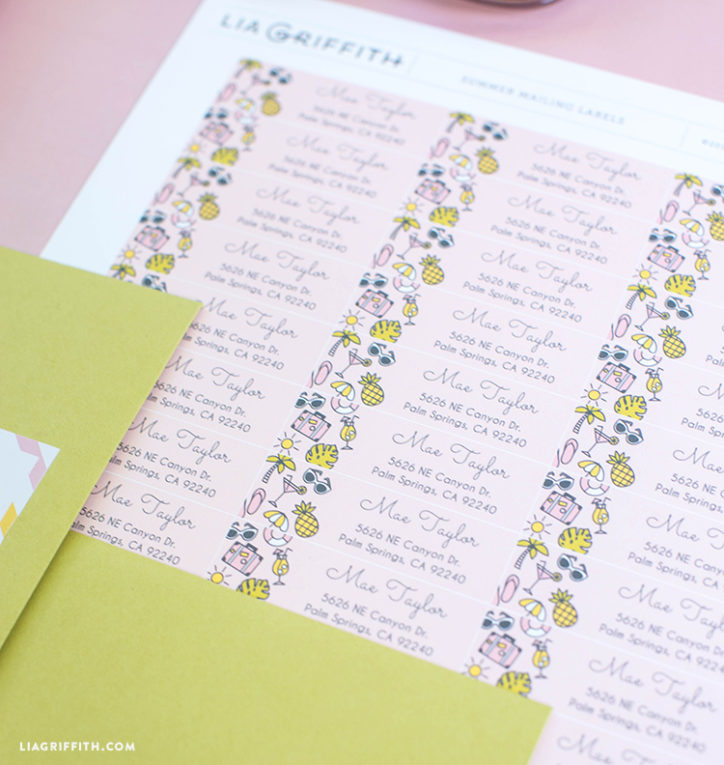 LIA GRIFFITH
SUMMER MAILING LABELS
Mae Taylor
5626 NE Canyon Dr.
Palm Springs, CA 92240
Mae Taylor
5626 NE Canyon Dr.
Palm Springs, CA 92240
Mae Taylor
5626 NE Canyon Dr.
Palm Springs, CA 92240
Mae Taylor
5626 NE Canyon Dr.
Palm Springs, CA 92240
Mae Taylor
5626 NE Canyon Dr.
Palm Springs, CA 92240
Mae Taylor
5626 NE Canyon Dr.
Palm Springs, CA 92240
Mae Taylor
5626 NE Canyon Dr.
Palm Springs, CA 92240
Mae Taylor
5626 NE Canyon Dr.
Palm Springs, CA 92240
Mae Taylor
5626 NE Canyon Dr.
Palm Springs, CA 92240
Mae Taylor
5626 NE Canyon Dr.
Palm Springs, CA 92240
Mae Taylor
5626 NE Canyon Dr.
Palm Springs, CA 92240
Mae Taylor
5626 NE Canyon Dr.
Palm Springs, CA 92240
Mae Taylor
5626 NE Canyon Dr.
Palm Springs, CA 92240
Mae Taylor
5626 NE Canyon Dr.
Palm Springs, CA 92240
Mae Taylor
5626 NE Canyon Dr.
Palm Springs, CA 92240
Mae Taylor
5626 NE Canyon Dr.
Palm Springs, CA 92240
Mae
5626 NE
Palm Springs
Mae
5626 NE
Palm Springs,
Mae Taylor
5626 NE Canyon
Palm Springs, CA
Mae Taylor
5626 NE Canyon Dr.
Palm Springs, CA
Mae Taylor
LIAGRIFFITH.COM